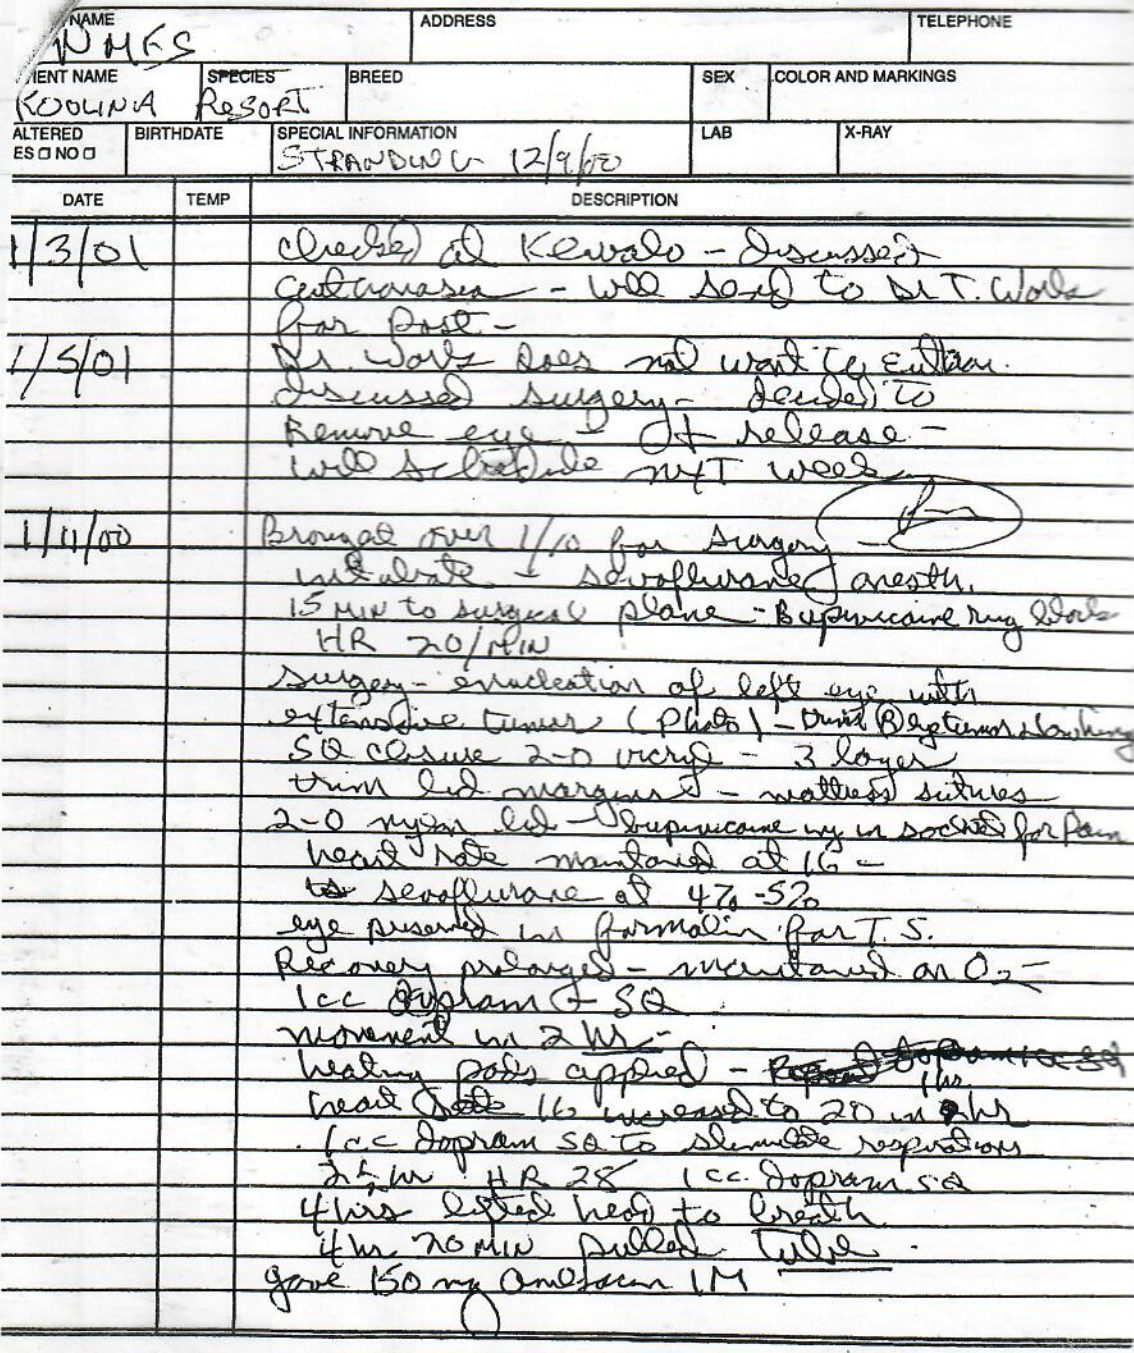 NAME ADDRESS TELEPHONE
NMFS
IENT NAME SPECIES BREED SEX COLOR AND MARKINGS
KOOLINA RESORT
ALTERED BIRTHDATE SPECIAL INFORMATION LAB X-RAY
ES □ NO □ STRANDING 12/9/00
DATE TEMP DESCRIPTION
1/3/01 checked at Kewalo - discussed
euthanasia - will send to Dr T. Work
for post -
1/5/01 Dr. Work does not want to euthan.
discussed surgery - decided to
Remove eye - release -
will schedule nxt week
1/11/00 Brought over 1/10 for surgery -
intubate - sevoflurane anesth.
15 MIN to surgical plane - Bupivicaine ring block
HR 20/MIN
Surgery - enucleation of left eye with
extensive tumor (Photo) - trim
SQ closure 2-0 vicryl - 3 layer
trim lid margins - mattress sutures
2-0 nylon lid - bupivicaine inj in socket for pain
heart rate maintained at 16 -
sevoflurane at 4% - 5%
eye preserved in formalin for T. S.
Recovery prolonged - maintained on O2 -
1cc dopram - SQ
movement in 2 hr -
heating pads applied -
heart rate 16 increased to 20 in 1 hr
1cc dopram SQ to stimulate respirations
2½ hr HR 28 1cc. dopram SQ
4 hrs lifted head to breath
4 hr 20 MIN pulled tube
gave 150 mg IM